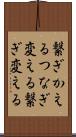 繋ぎかえ
るつなぎ
変える繋
ぎ変える